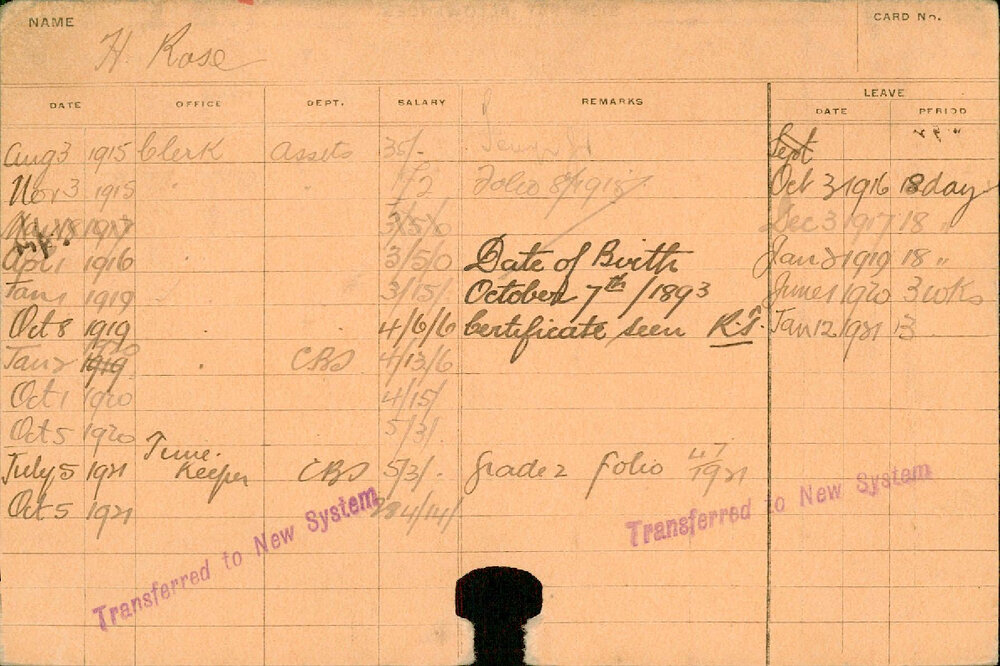 NAME
CARD No.
H. Rose
DATE OFFICE DEPT. SALARY REMARKS LEAVE
DATE PERIOD
Aug 3 1915 Clerk Assets 35/-
Sept
Nov 3 1915 " " Folio 8/1915 Oct 3 1916 18 day
3/5/0 Dec 3 1917 18 "
Apl 1 1916 3/5/0 Date of Birth Jan 2 1919 18 "
Jan 1 1919 3/15/ October 7th/1893 June 1 1920 3 wks
Oct 8 1919 4/6/6 Certificate seen R.J. Jan 12 1921 13
Jan 2 1919 1920 " CBS 4/13/6
Oct 1 1920 4/15/
Oct 5 1920 5/3/
July 5 1921 Time Keeper CBS 5/3/- Grade 2 folio 47 1921
Oct 5 1921 4/14/
Transferred to New System
Transferred to New System